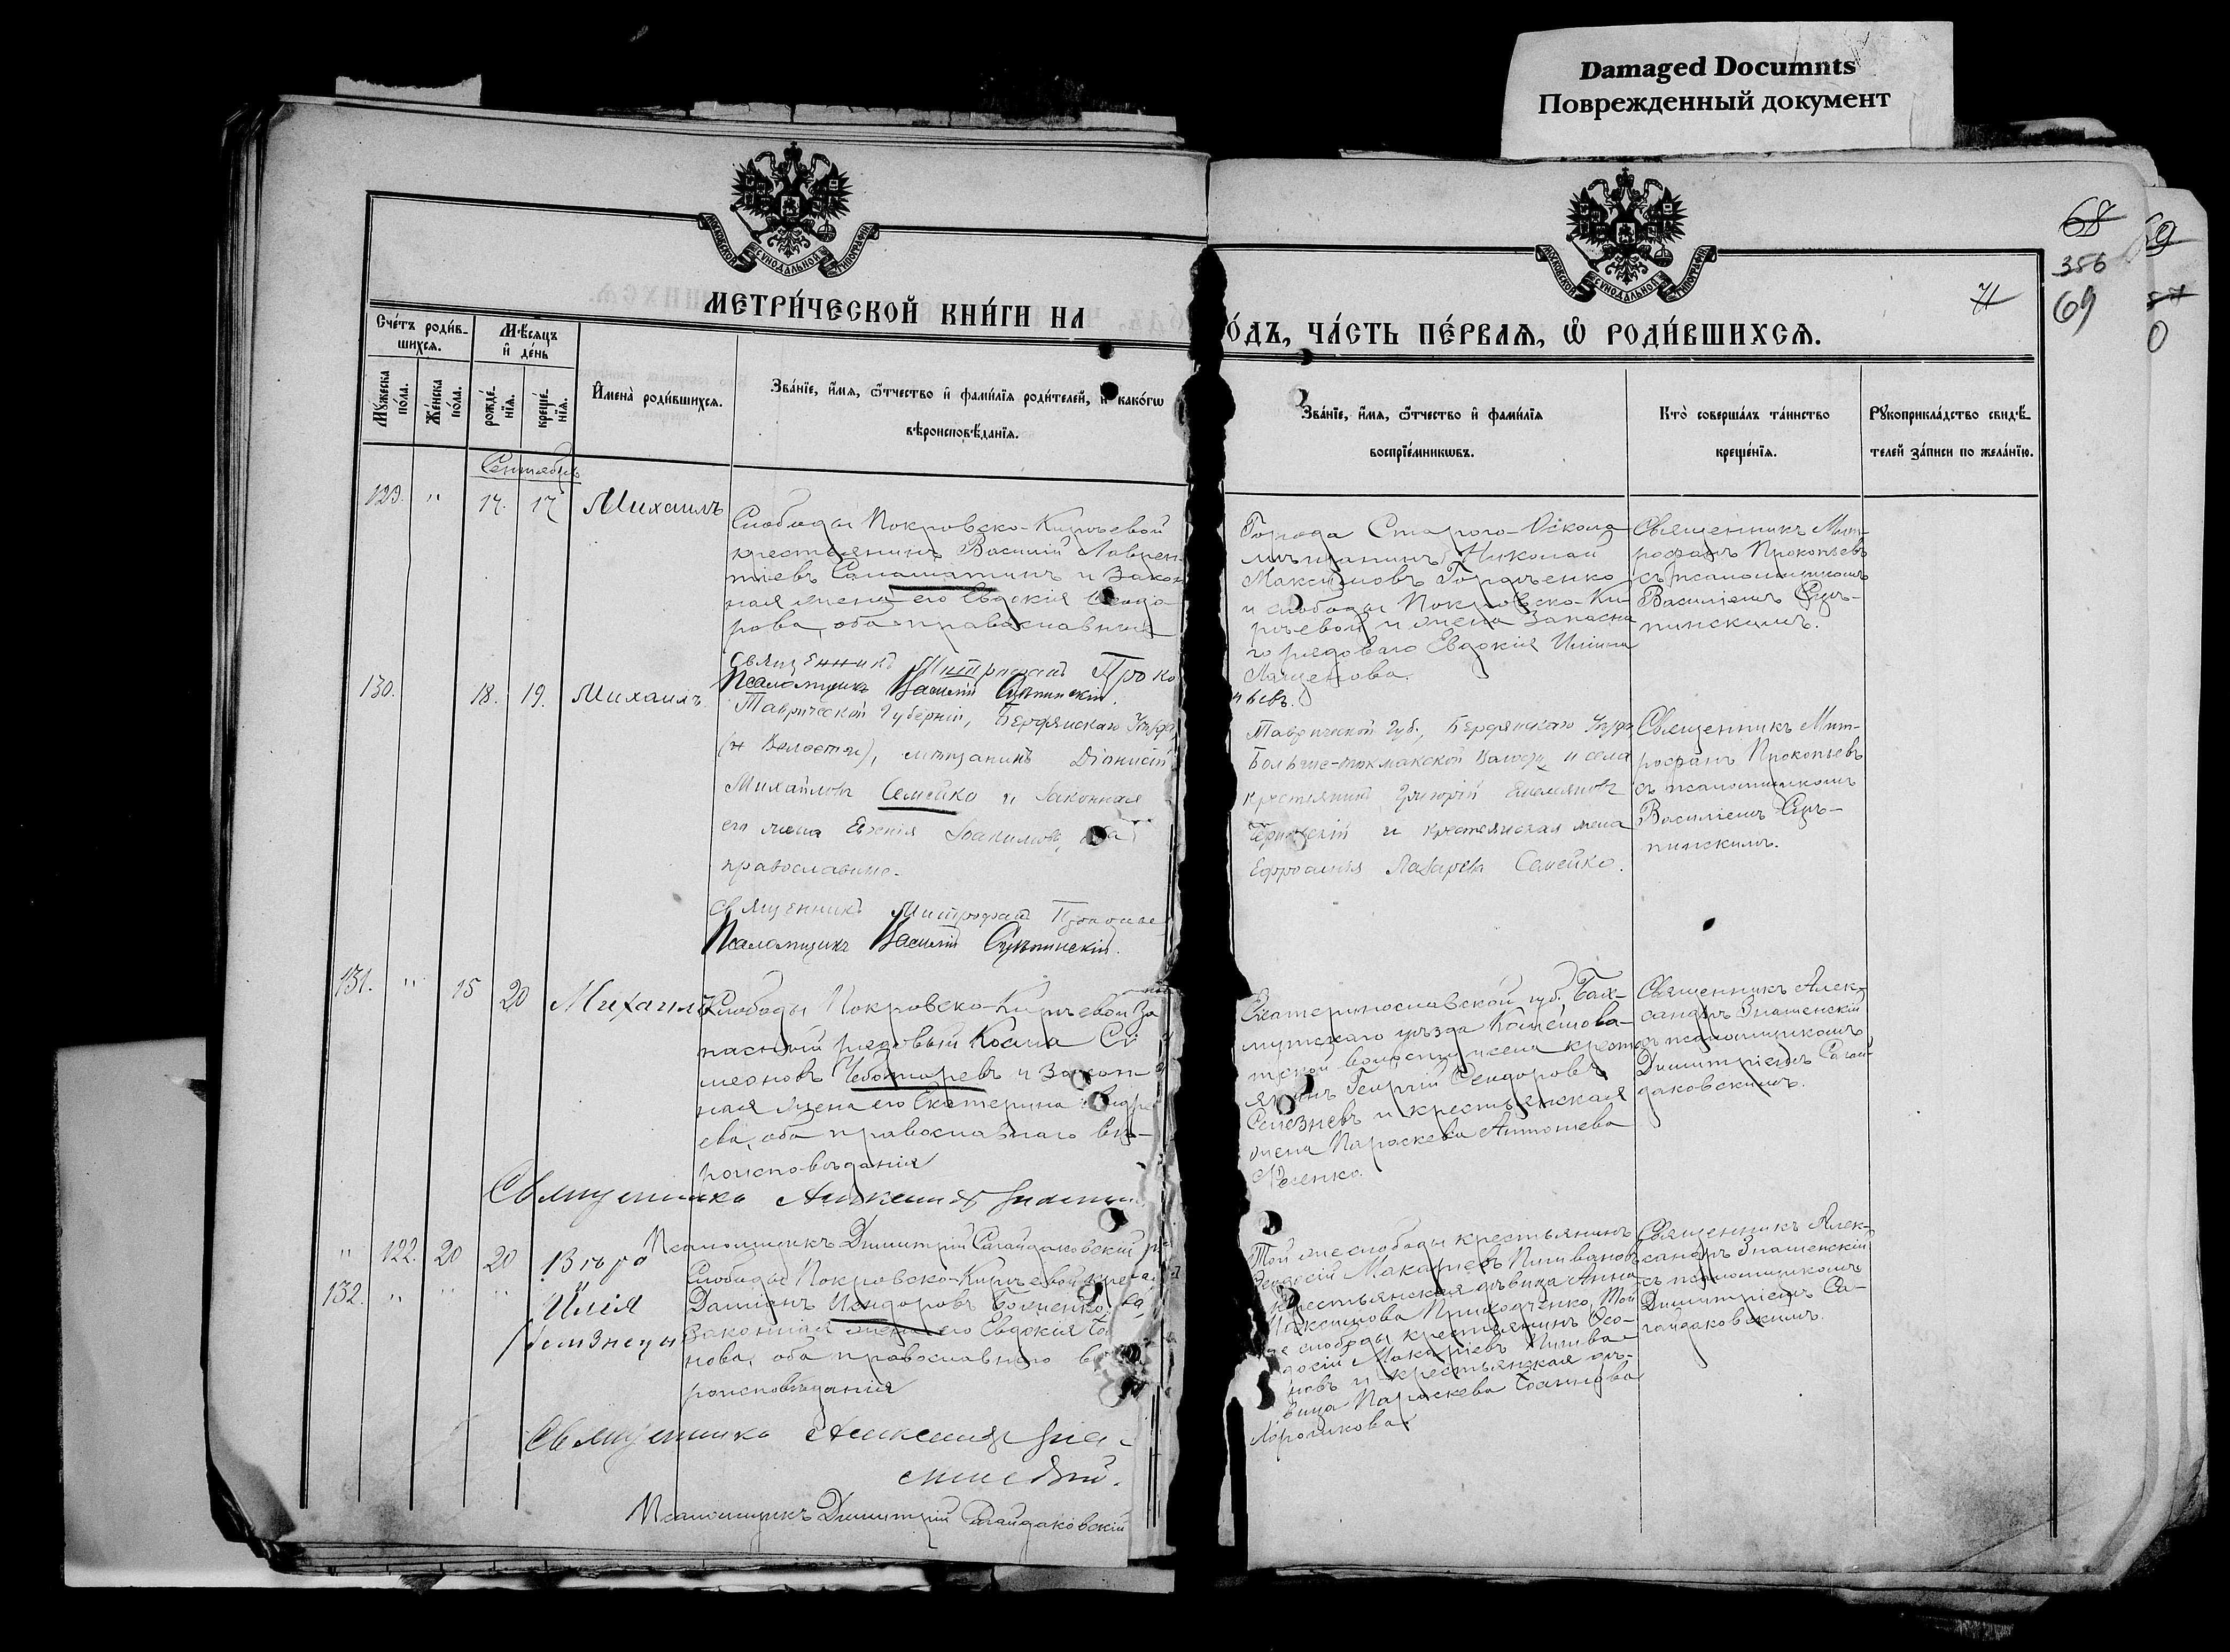 Damaged Documnts
Поврежденный документ
МОСКОВСКОЙ СѴНОДАЛЬНОЙ ТИПОГРАФІИ
МОСКОВСКОЙ СѴНОДАЛЬНОЙ ТИПОГРАФІИ
68
356
69
71
МЕТРИ́ЧЕСКОЙ КНИ́ГИ НА
О́ДЪ, ЧА́СТЬ ПЕ́РВАѦ, Ѡ҆ РОДИ́ВШИХСѦ.
Сче́тъ роди́в-
шихсѧ.
Мѣ́сѧцъ
и҆ де́нь
Мꙋ́жеска
по́ла.
Же́нска
по́ла.
рожде́-
нїѧ.
креще́-
нїѧ.
И҆мена̀ роди́вшихсѧ.
Зва́нїе, и҆́мѧ, ѻ҆́тчество и҆ фами́лїѧ роди́телей, и҆ како́гѡ
вѣроисповѣ́данїѧ.
Зва́нїе, и҆́мѧ, ѻ҆́тчество и҆ фами́лїѧ
воспрїе́мникѡвъ.
Кто̀ соверша́лъ та́инство
креще́нїѧ.
Рꙋкоприкла́дство свидѣ́-
телей за́писи по жела́нїю.
Сентябрь
129. " 17. 17 Михаилъ
Слободы Покровско-Киреевой
крестьянинъ Василій Лаврен-
тіевъ Саламатинъ и закон
ная жена его Евдокія
рова, оба православные
Города Старого-Оскола
мѣщанинъ Николай
Максимовъ Гордченко
и слободы Покровско-Ки-
реевой и жена запасна
го рядоваго Евдокія Ильина
Священникъ Мит-
рофанъ Прокопьевъ
съ псаломщикомъ
Василіемъ Сцѣ-
пинскимъ.
Священникъ Митрофанъ Проко
пьевъ.
Псаломщикъ Василій Сцѣпинскій.
130. 18. 19. Михаилъ
Таврической Губерніи, Бердянскаго Уѣзда
(и Волости), мѣщанинъ Діонисій
Михайловъ Семейко и законная
его жена Евгенія Іоакимова, оба
православные.
Таврической Губ., Бердянскаго Уѣзда
Больше-токмакской Волости и села
крестьянинъ Григорій Емельяновъ
и крестьянская жена
Евфросинія Лазарева Семейко.
Священникъ Мит-
рофанъ Прокопьевъ
съ псаломщикомъ
Василіемъ Сцѣ-
пинскимъ.
Священникъ Митрофанъ Прокопье
Псаломщикъ Василій Сцѣпинскій.
131. " 15 20 Михаилъ
Слободы Покровско-Киреевой За
пасный рядовый Косма Си
меоновъ Чеботаревъ и закон
ная жена его Екатерина Андре
ева, оба православнаго вѣ-
роисповѣданія
Екатеринославской губ. Бах-
мутскаго уѣзда
тской волости и села крест
янинъ Георгій Ѳеодоровъ
Селезневъ и крестьянская
жена Параскева Антонова
Священникъ Алек-
сандръ Знаменскій
съ псаломщикомъ
Димитріемъ Сагай-
даковскимъ.
Священникъ Александръ Знаменск
Псаломщикъ Димитрій Сагайдаковскій
" 122. 20 20 Вѣра
132. " " " Илія
близнецы
Слободы Покровско-Киреевой крестья
Даміанъ Ѳеодоровъ
законная жена его Евдокія
нова, оба православнаго вѣ
роисповѣданія
Той же слободы крестьянинъ
Ѳеодосій Макаріевъ Пиливановъ
крестьянская дѣвица Анна
Максимова Приходченко, Той
же слободы крестьянинъ Ѳео-
досій Макаріевъ Пилива-
новъ и крестьянская дѣ-
вица Параскева Іоаннова
Священникъ Алек-
сандръ Знаменскій
съ псаломщикомъ
Димитріемъ Са-
гайдаковскимъ.
Священникъ Александръ Зна-
менскій.
Псаломщикъ Димитрій Сагайдаковскій